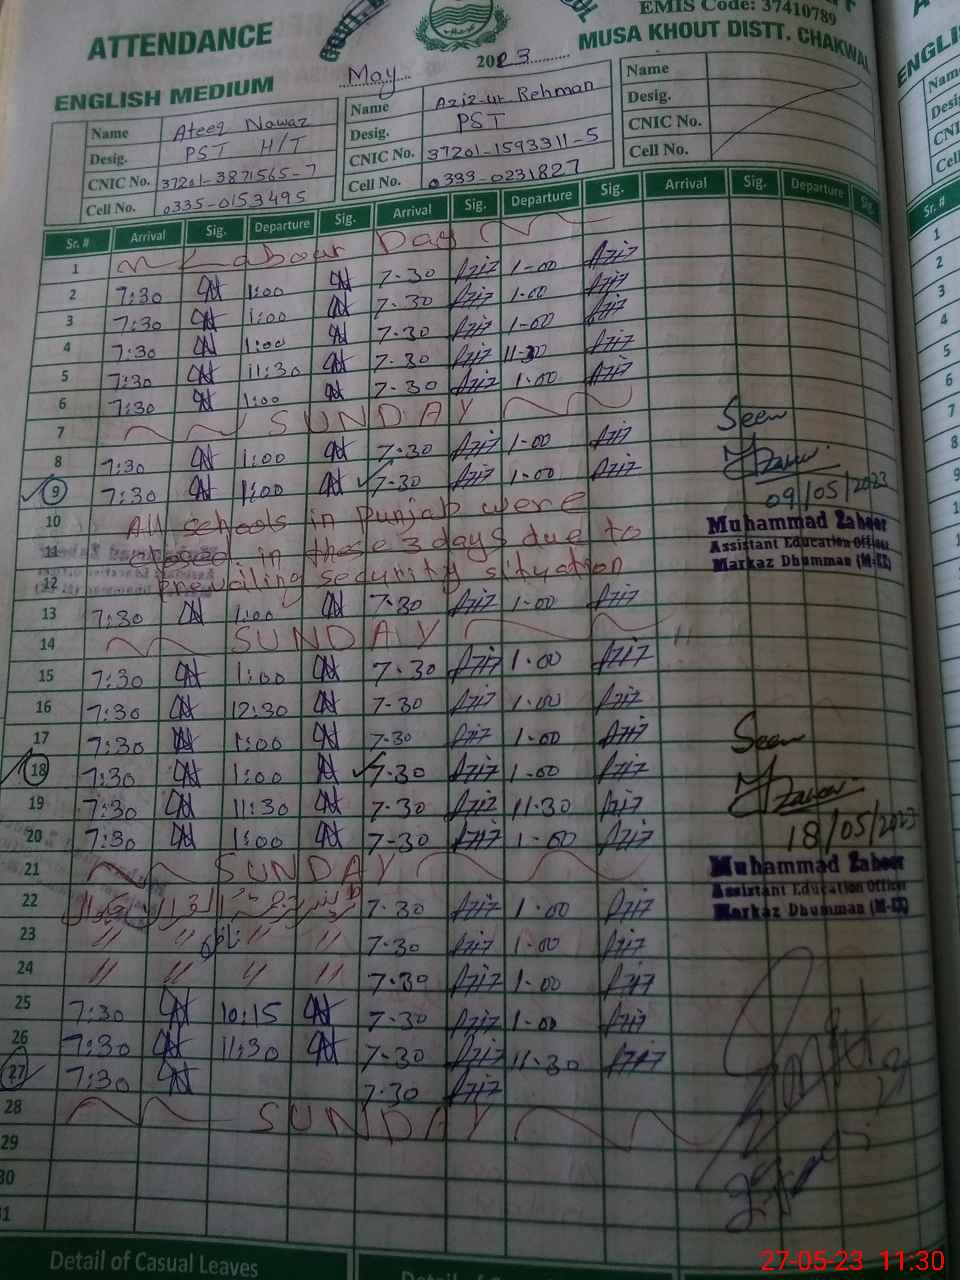 EMIS Code: 37410789
ATTENDANCE
MUSA KHOUT DISTT. CHAKWAL
ENGLISH MEDIUM
May 2023
Name Ateeq Nawaz
Desig. PST H/T
CNIC No. 37201-3871565-7
Cell No. 0335-0153495
Name Aziz-ur-Rehman
Desig. PST
CNIC No. 37201-1593311-5
Cell No. 0333-0231827
Name
Desig.
CNIC No.
Cell No.
Sr. # Arrival Sig. Departure Sig. Arrival Sig. Departure Sig. Arrival Sig. Departure Sig.
1 Labour Day
2 7:30 1:00 7-30 Aziz 1-00 Aziz
3 7:30 1:00 7-30 Aziz 1-00 Aziz
4 7:30 1:00 7-30 Aziz 1-00 Aziz
5 7:30 11:30 7-30 Aziz 11-30 Aziz
6 7:30 1:00 7-30 Aziz 1-00 Aziz
7 SUNDAY
8 7:30 1:00 7-30 Aziz 1-00 Aziz
9 7:30 1:00 7-30 Aziz 1-00 Aziz
Seen
09/05/2023
Muhammad Zaheer
Assistant Education Officer
Markaz Dhumman (M-EE)
10 All schools in Punjab were
11 closed in these 3 days due to
12 prevailing security situation
13 7:30 1:00 7-30 Aziz 1-00 Aziz
14 SUNDAY
15 7:30 1:00 7-30 Aziz 1-00 Aziz
16 7:30 12:30 7-30 Aziz 1-00 Aziz
17 7:30 1:00 7-30 Aziz 1-00 Aziz
18 7:30 1:00 7-30 Aziz 1-00 Aziz
19 7:30 11:30 7-30 Aziz 11-30 Aziz
20 7:30 1:00 7-30 Aziz 1-00 Aziz
Seen
18/05/2023
Muhammad Zaheer
Assistant Education Officer
Markaz Dhumman (M-EE)
21 SUNDAY
22 7-30 Aziz 1-00 Aziz
23 〃 〃 〃 〃 7-30 Aziz 1-00 Aziz
24 〃 〃 〃 〃 7-30 Aziz 1-00 Aziz
25 7:30 10:15 7-30 Aziz 1-00 Aziz
26 7:30 11:30 7-30 Aziz 11-30 Aziz
27 7:30 7-30 Aziz
28 SUNDAY
29
30
31
Detail of Casual Leaves
27-05-23 11:30